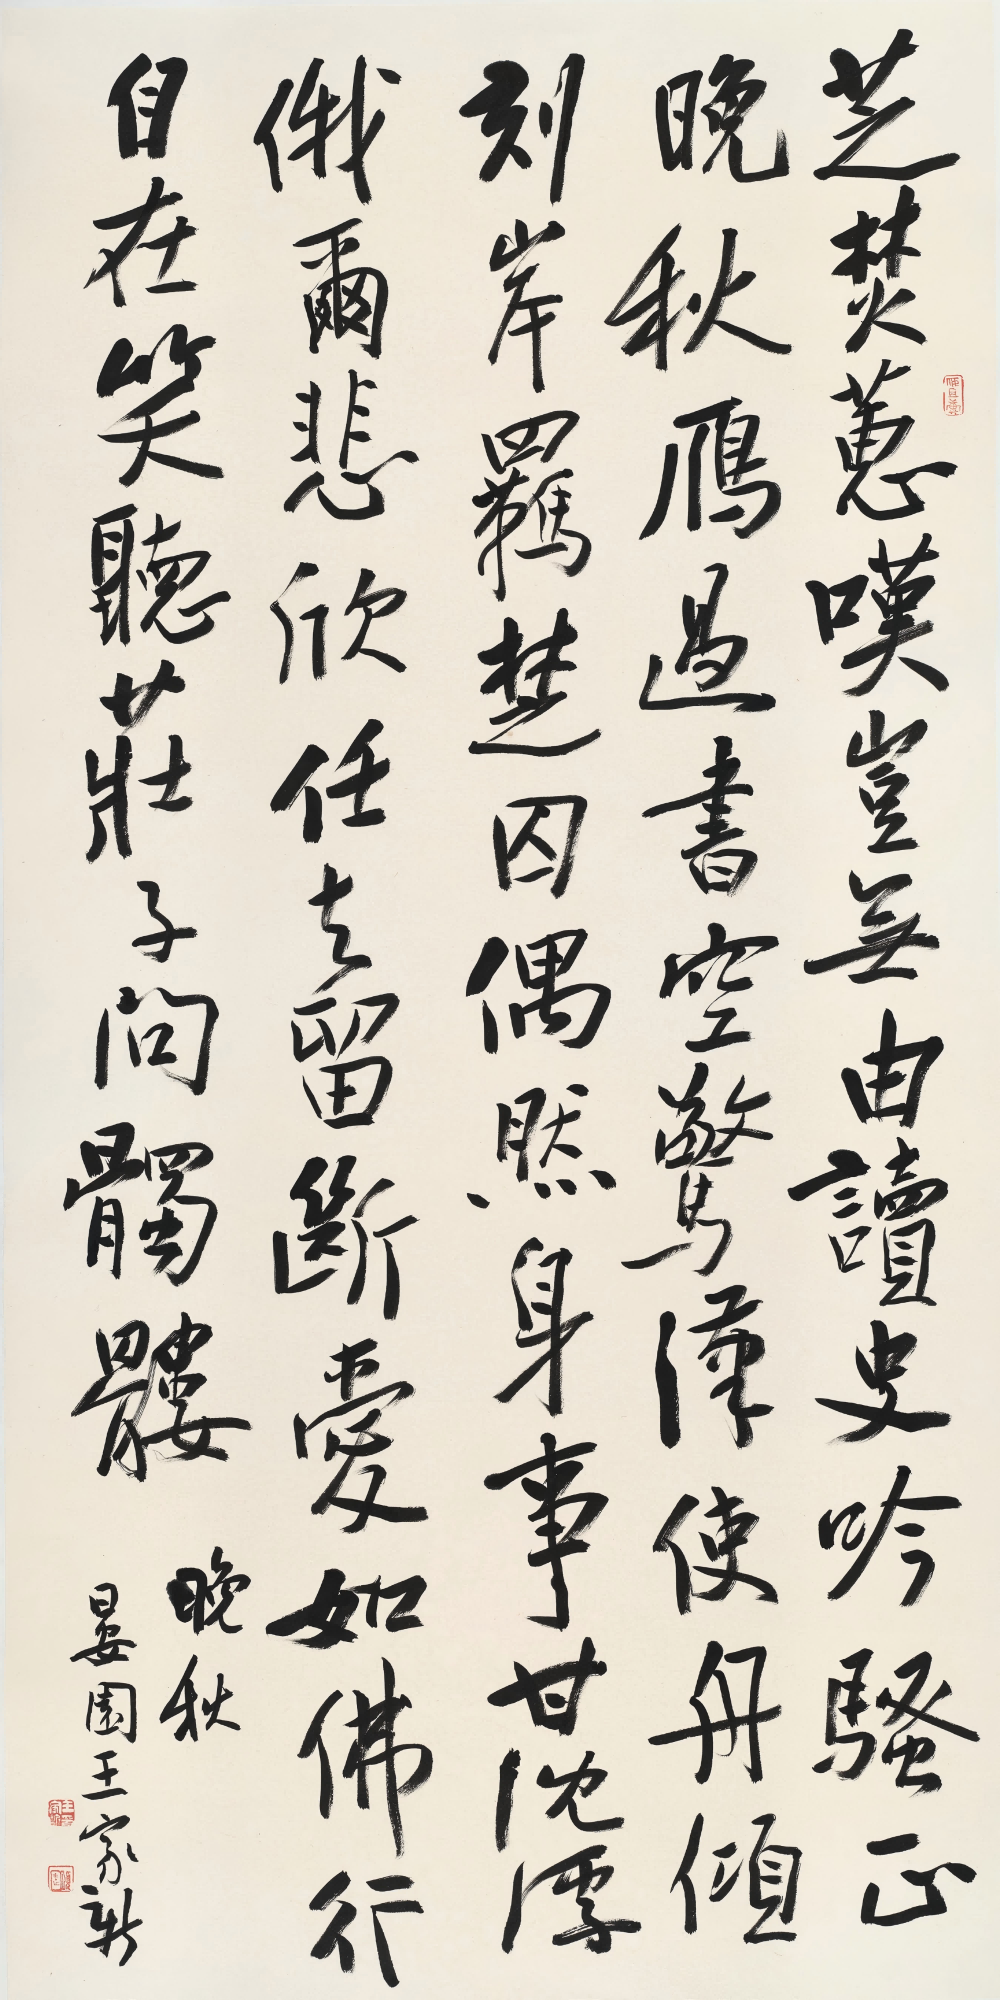 芝焚蕙嘆豈無由讀史吟騷正
晚秋雁過書空驚漢使舟傾
刻岸羈楚囚偶然身事甘沈浮
俄爾悲欣任去留斷愛如佛行
自在笑聽莊子問髑髏
晚秋
晏園王家新